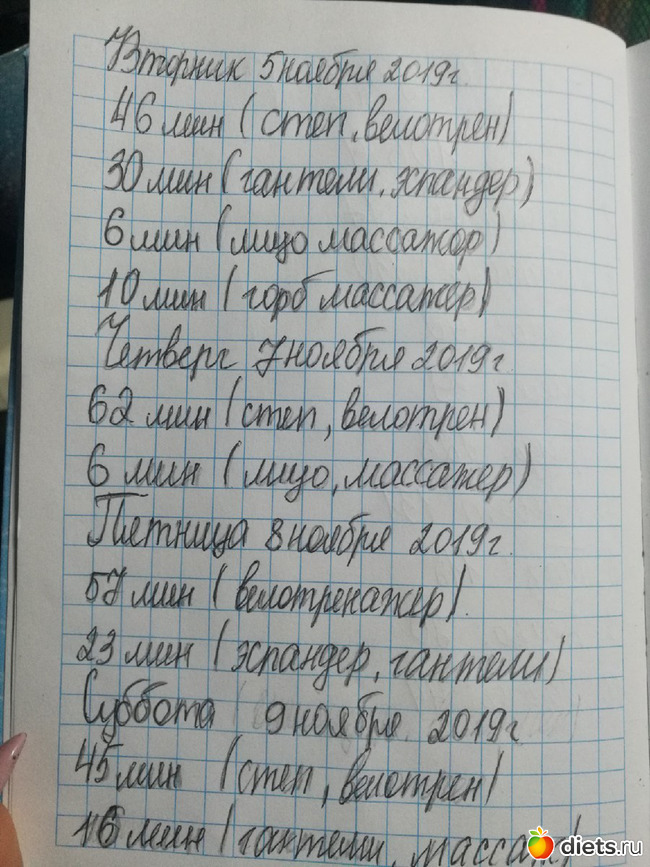 Вторник 5 ноября 2019г.
46 мин (степ, велотрен)
30 мин (гантели, эспандер)
6 мин (лицо массажор)
10 мин (горб массажер)
Четверг 7 ноября 2019г.
62 мин (степ, велотрен)
6 мин (лицо, массажер)
Пятница 8 ноября 2019г.
57 мин (велотренажер).
23 мин (эспандер, гантели)
Суббота 9 ноября 2019г
45 мин (степ, велотрен)
16 мин (гантели, массаж)
diets.ru